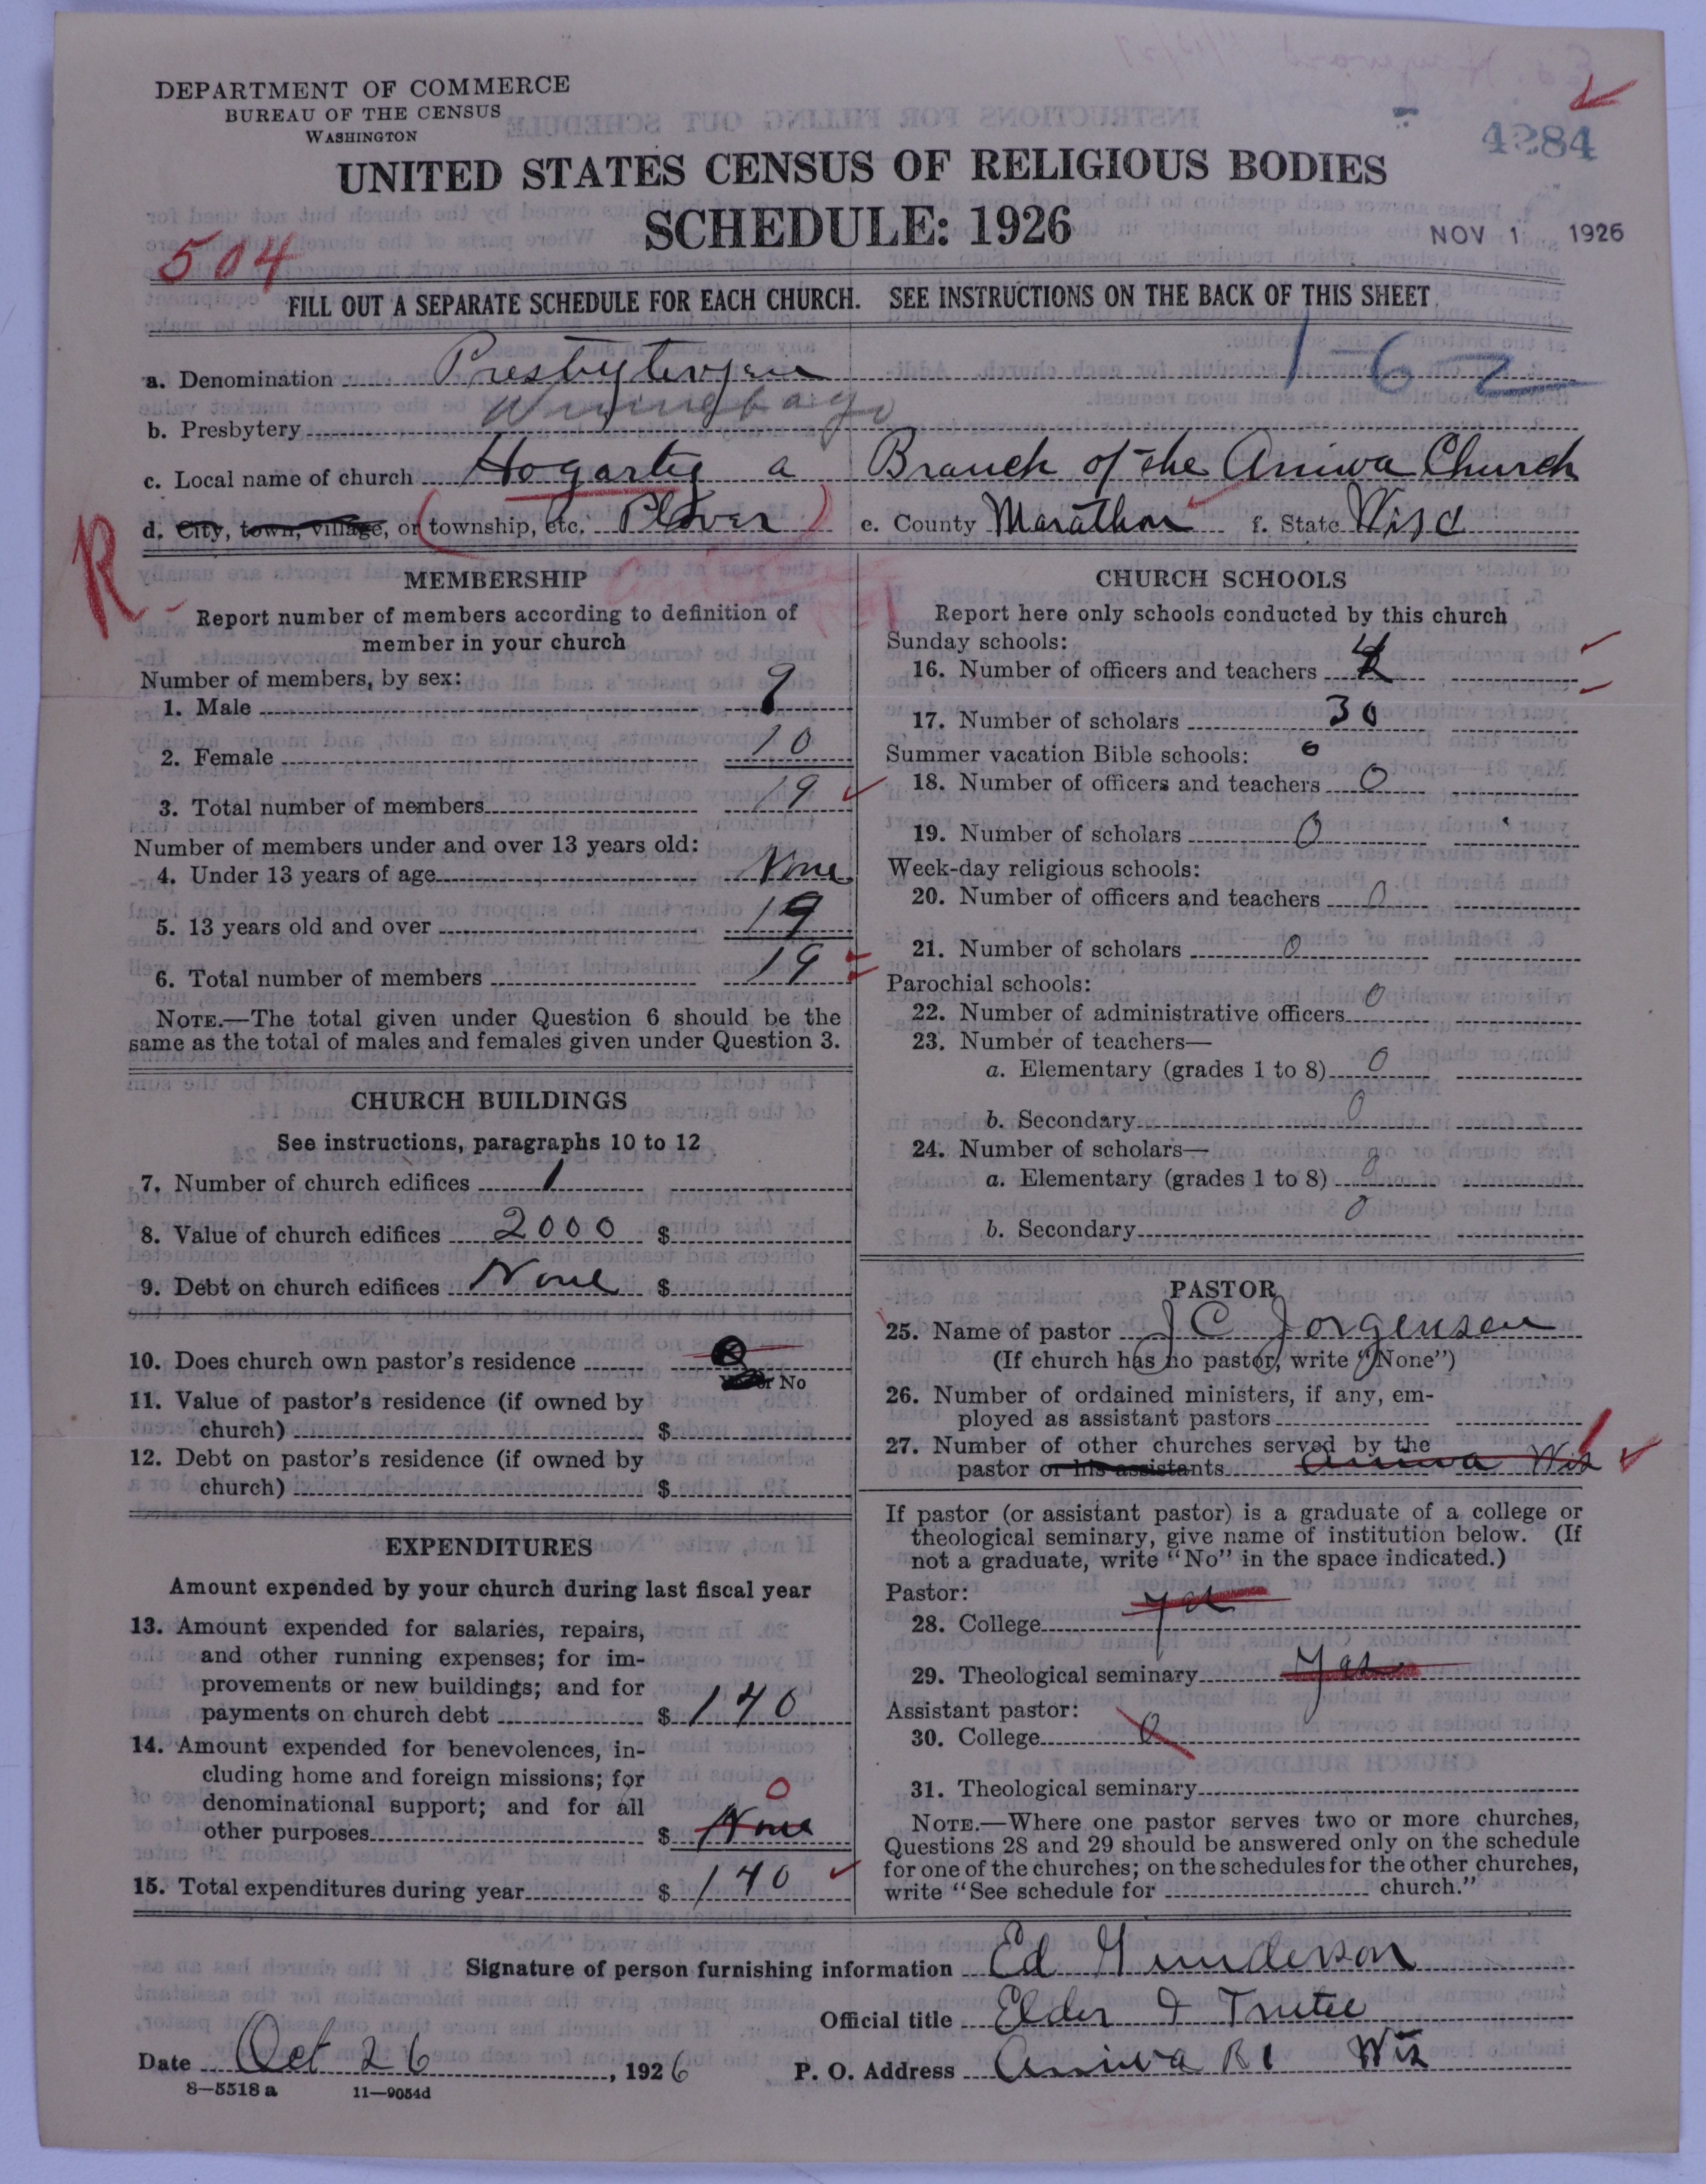 DEPARTMENT OF COMMERCE
BUREAU OF THE CENSUS
WASHINGTON
4284
UNITED STATES CENSUS OF RELIGIOUS BODIES
SCHEDULE: 1926
NOV 1 1926
504
FILL OUT A SEPARATE SCHEDULE FOR EACH CHURCH. SEE INSTRUCTIONS ON THE BACK OF THIS SHEET
a. Denomination Presbyterian 1-62
b. Presbytery Winnebago
c. Local name of church Hogarty a Branch of the Aniwa Church
d. City, town, village, or (township, etc. Plover) e. County Marathon f. State Wisc
R
MEMBERSHIP
Report number of members according to definition of
member in your church
Number of members, by sex:
1. Male 9
2. Female 10
3. Total number of members 19
Number of members under and over 13 years old:
4. Under 13 years of age None
5. 13 years old and over 19
6. Total number of members 19
NOTE.—The total given under Question 6 should be the
same as the total of males and females given under Question 3.
CHURCH BUILDINGS
See instructions, paragraphs 10 to 12
7. Number of church edifices 1
8. Value of church edifices 2000 $
9. Debt on church edifices None $
10. Does church own pastor's residence
or No
11. Value of pastor's residence (if owned by
church) $
12. Debt on pastor's residence (if owned by
church) $
EXPENDITURES
Amount expended by your church during last fiscal year
13. Amount expended for salaries, repairs,
and other running expenses; for im-
provements or new buildings; and for
payments on church debt $ 140
14. Amount expended for benevolences, in-
cluding home and foreign missions; for
denominational support; and for all 0
other purposes $ None
15. Total expenditures during year $ 140
CHURCH SCHOOLS
Report here only schools conducted by this church
Sunday schools:
16. Number of officers and teachers 4
17. Number of scholars 30
Summer vacation Bible schools: 0
18. Number of officers and teachers 0
19. Number of scholars 0
Week-day religious schools:
20. Number of officers and teachers 0
21. Number of scholars 0
Parochial schools:
22. Number of administrative officers 0
23. Number of teachers—
a. Elementary (grades 1 to 8) 0
b. Secondary 0
24. Number of scholars—
a. Elementary (grades 1 to 8) 0
b. Secondary 0
PASTOR
25. Name of pastor J C Jorgensen
(If church has no pastor, write "None")
26. Number of ordained ministers, if any, em-
ployed as assistant pastors
27. Number of other churches served by the 1
pastor or his assistants Aniwa Wis
If pastor (or assistant pastor) is a graduate of a college or
theological seminary, give name of institution below. (If
not a graduate, write "No" in the space indicated.)
Pastor:
28. College yes
29. Theological seminary Yes
Assistant pastor:
30. College 0
31. Theological seminary
NOTE.—Where one pastor serves two or more churches,
Questions 28 and 29 should be answered only on the schedule
for one of the churches; on the schedules for the other churches,
write "See schedule for church."
Signature of person furnishing information Ed Gunderson
Official title Elder & Trustee
Date Oct 26, 1926 P. O. Address Aniwa R1 Wis
8—5518 a 11—9054d